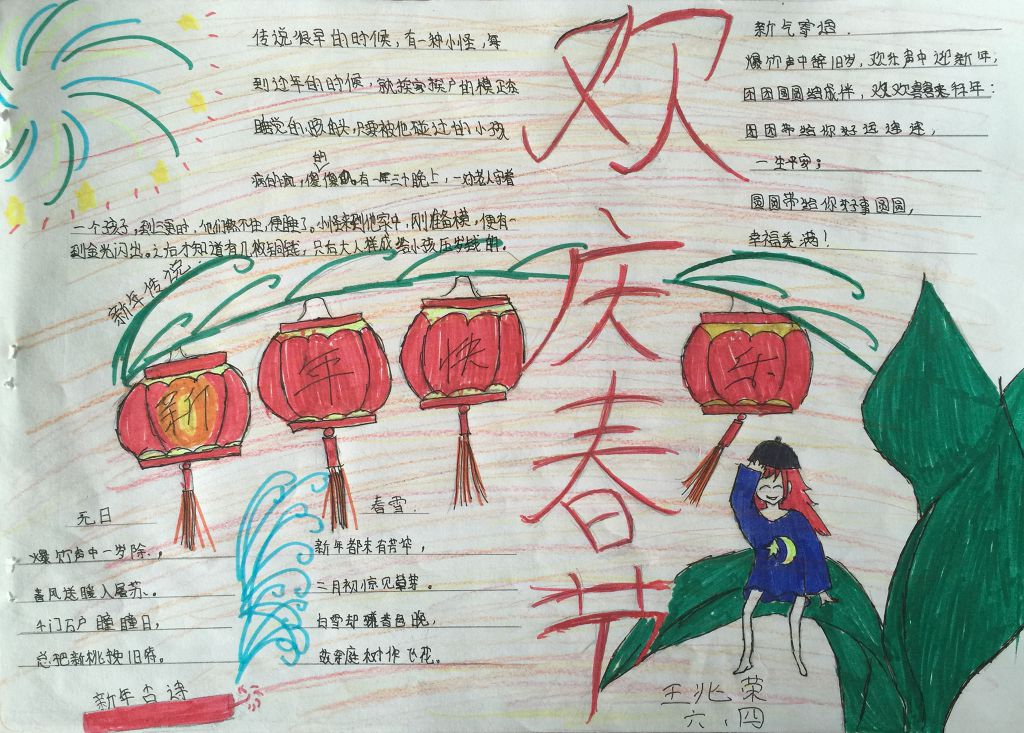 欢庆春节
传说很早的时候，有一种小怪，每
到过年的时候，就挨家挨户的摸正在
睡觉的孩头，只要被他碰过的小孩
疯的疯，傻的傻的。有一年三十晚上，一对老人守着
一个孩子，到三更时，他们熬不住，便睡了。小怪来到他家中，刚准备摸，便有一
到金光闪出。之后才知道有几枚铜钱，只有大人
新年传说：
新气象语.
爆竹声中辞旧岁，欢乐声中迎新年，
团团圆圆结成伴，欢欢喜喜来拜年：
团团带给你好运连连，
一生平安；
圆圆带给你好事圆圆，
幸福美满！
新
年
快
乐
元日
爆竹声中一岁除，
春风送暖入屠苏。
千门万户瞳瞳日，
总把新桃换旧符。
春雪.
新年都未有芳华，
二月初惊见草芽。
白雪却嫌春色晚，
故穿庭树作飞花。
新年古诗
王兆荣
六.四